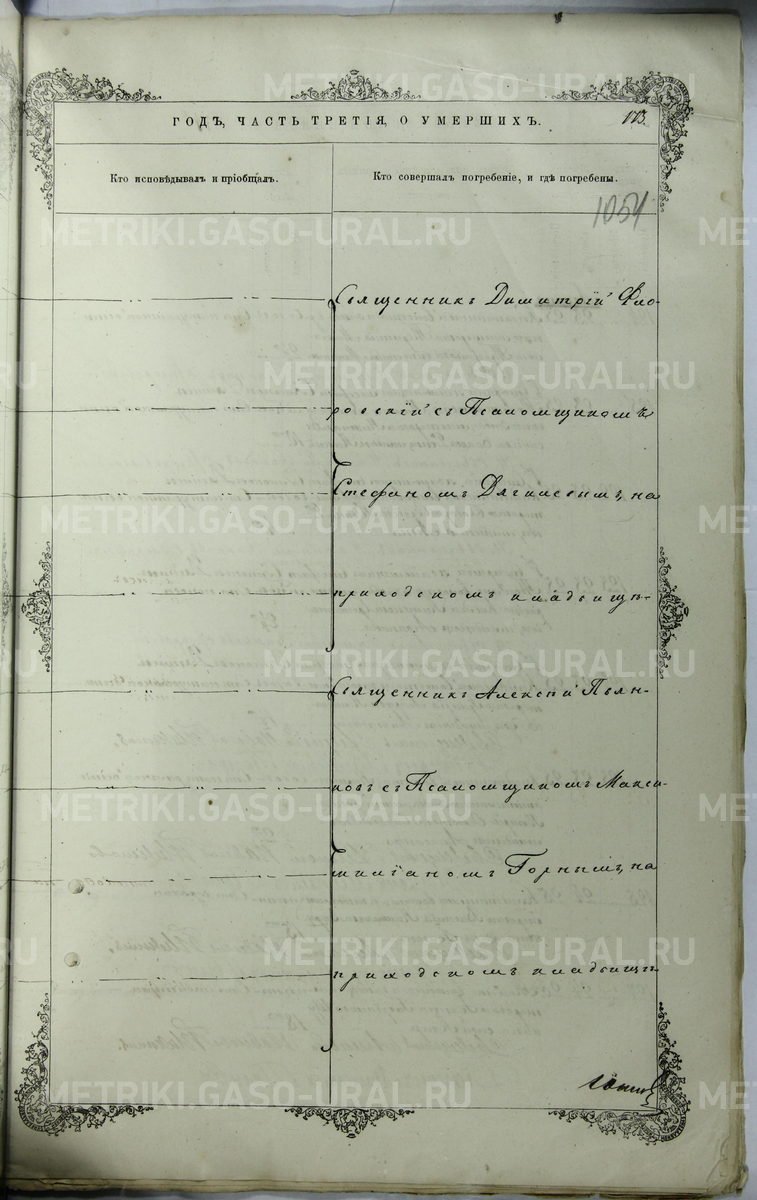 ГОДЪ, ЧАСТЬ ТРЕТІЯ, О УМЕРШИХЪ.
113.
Кто исповѣдывалъ и пріобщалъ.
Кто совершалъ погребеніе, и гдѣ погребены.
1054
Священникъ Димитрій Фло-
ровскій съ Псаломщикомъ
Стефаномъ Дягилевымъ, на
приходскомъ кладбищѣ.
Священникъ Алексѣй Пьян-
ковъ съ Псаломщикомъ Макси-
миліаномъ Горнымъ, на
приходскомъ кладбищѣ
METRIKI.GASO-URAL.RU